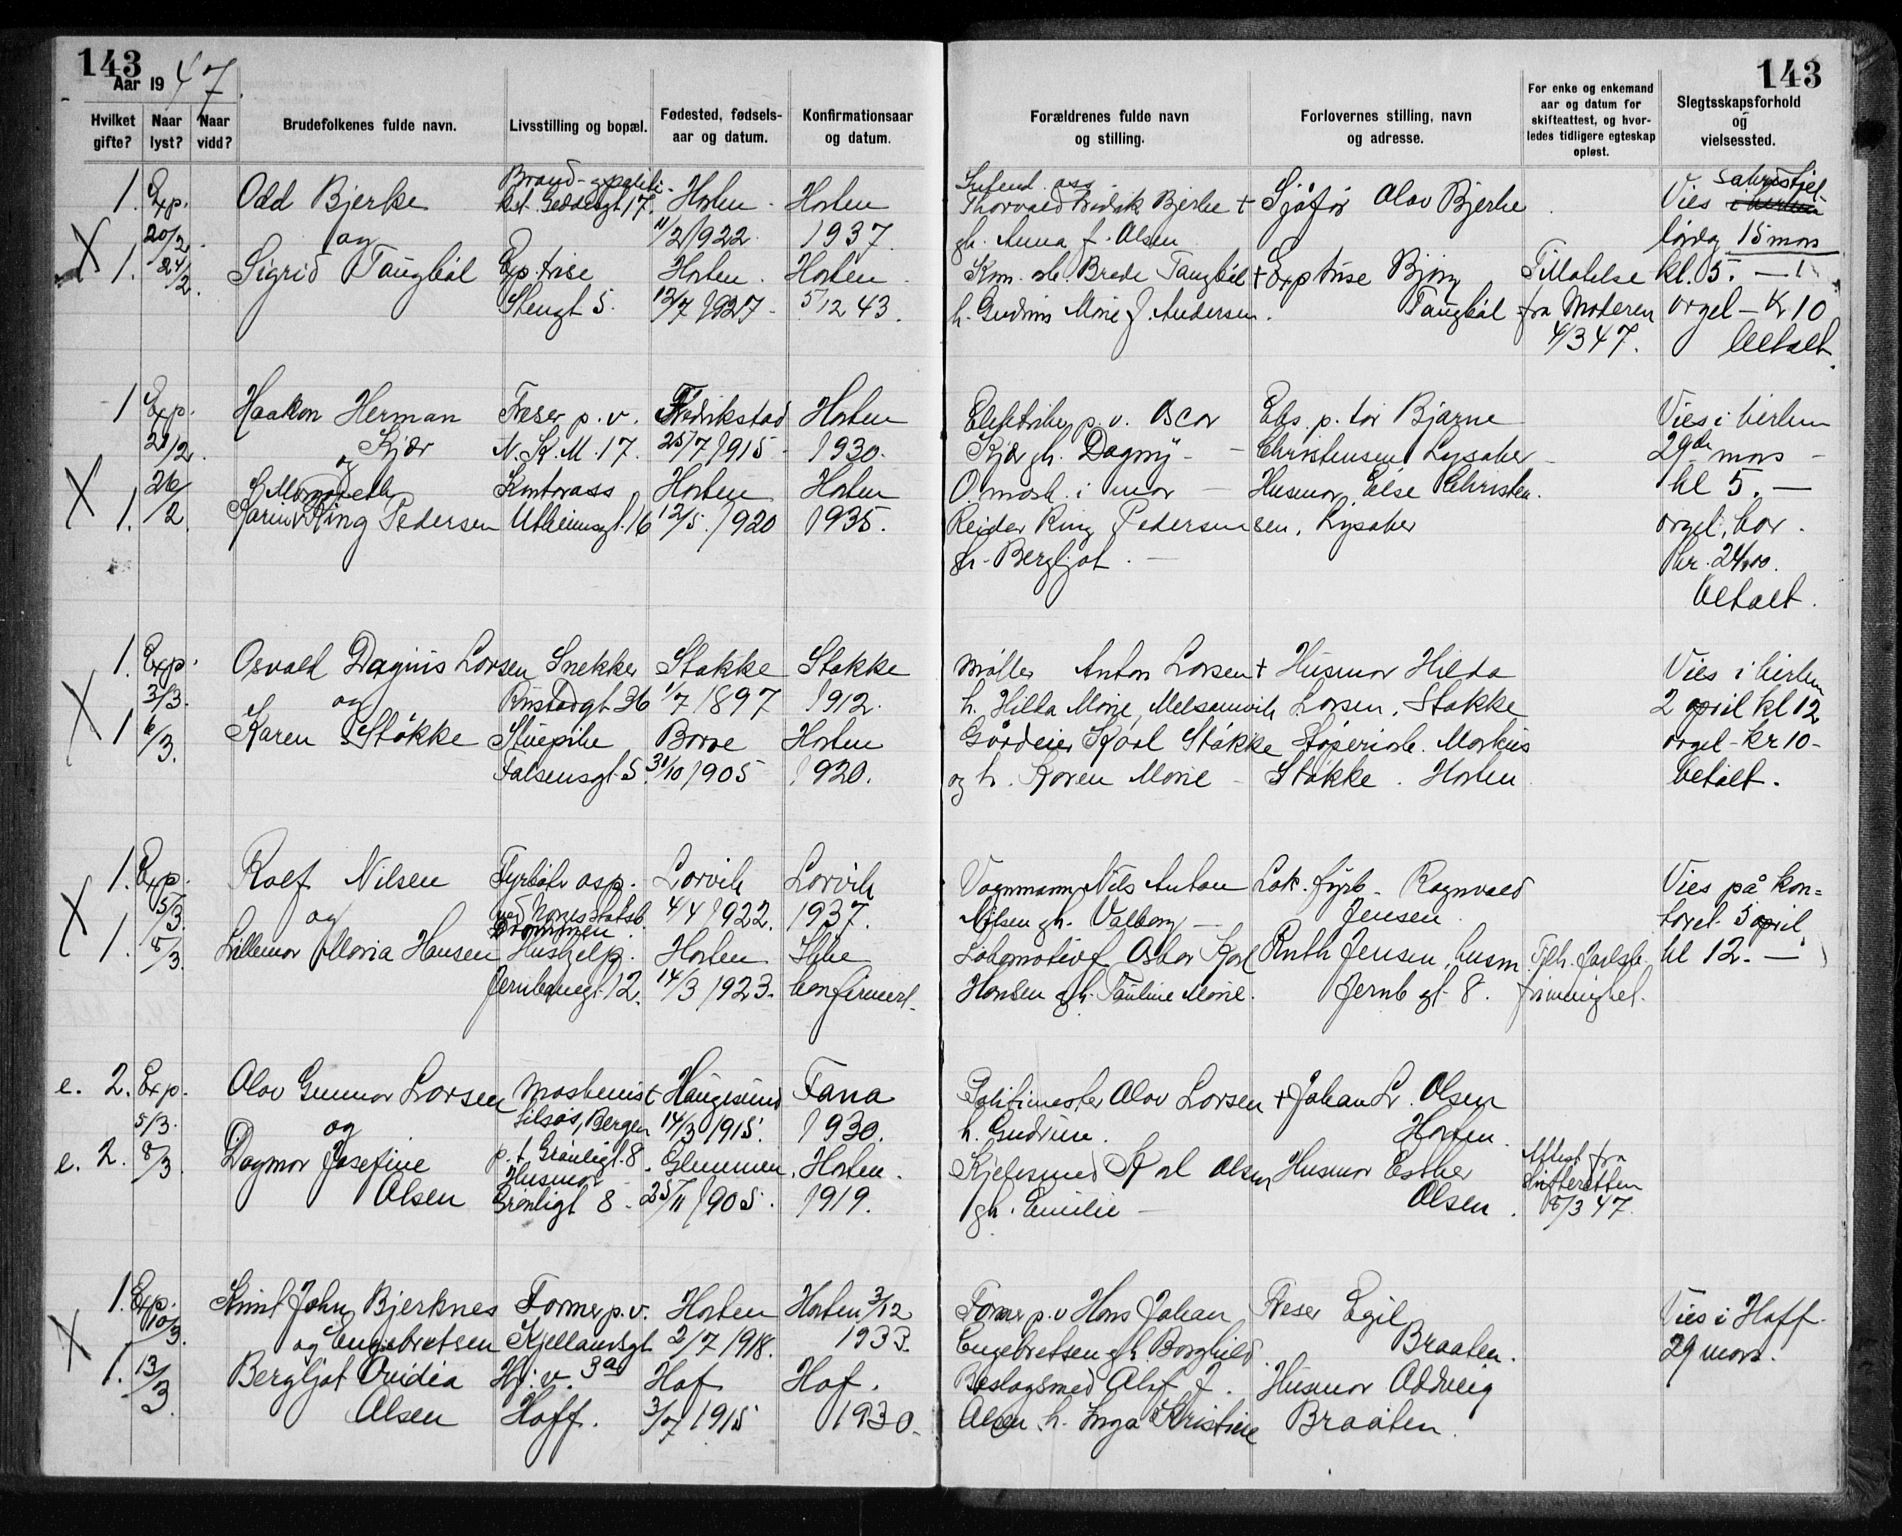 143
Aar 1947.
Hvilket gifte?
Naar lyst?
Naar vidd?
Brudefolkenes fulde navn.
Livsstilling og bopæl.
Fødested, fødsels-
aar og datum.
Konfirmationsaar
og datum.
1. Exp. Odd Bjerke Horten Horten
20/2 og 11/2 1922 1937
X 1. 24/2. Sigrid Taugbøl Exp.trise Horten. Horten
Stengt 5. 12/7 1927 5/12 43.
1 Exp. Haakon Herman Freser p.v. Fredrikstad Horten
21/2. og Kjær N.K.M.17. 25/7 1915 1930.
X 26/2 Margareth Kontorass Horten Horten
1. Karin Ring Pedersen Utheimsgt.16 12/5. 1920 1935.
1. Exp. Osvald Daginus Larsen Snekker Stokke Stokke
3/3. og Rustadgt 36 1/7 1897 1912.
X 1 6/3. Karen Støkke Stuepike Borre Horten
Falsensgt. 5. 31/10 1905 1920.
1. Exp. Rolf Nilsen Fyrbøter asp. Larvik Larvik
5/3. og ved Norges Statsb. 4/4 1922. 1937.
Drammen.
X 1. 8/3. Lillemor Maria Hansen Hushjelp. Horten Ikke
Jernbanegt. 12. 14/3 1923. konfirmert.
e. 2. Exp. Olav Gunnar Larsen Maskinist Haugesund Fana
5/3. og Bergen 14/3 1915. 1930.
e. 2. 8/3 Dagmar Josefine p.t. Grønligt. 8. Glemmen. Horten.
Olsen Husmor Grønligt 8. 25/11 1905. 1919.
1. Exp. Knut John Bjerknes Former p.v. Horten Horten 3/12
10/3. og Engebretsen Kjellandsgt 2/7 1918. 1933.
X 1. 13/3. Bergljot Ovidia Hj. v. 3a Hof Hof.
Olsen Hoff. 3/7 1915 1930.
143
Forældrenes fulde navn
og stilling.
Forlovernes stilling, navn
og adresse.
For enke og enkemand
aar og datum for
skifteattest, og hvor-
ledes tidligere egteskap
opløst.
Slegtsskapsforhold
og
vielsessted.
Intend. ass. sakristiet
Thorvald Fredrik Bjerke + Sjåfør Olav Bjerke Vies i kirken
gh. Anna f. Olsen lørdag 15 mars
Brede Taugbøl + Exptrise Bjørg Tillatelse kl. 5. —
h. Gudrun Marie f. Andersen. Taugbøl fra Moderen orgel – Kr 10
4/3 47. betalt
p.v. Oscar Eks. p. tør Bjarne Vies i kirken
Kjær gh. Dagny – Christensen Lysaker 29de mars –
Husmor Else Christen. kl 5. —
Reidar Ring Pedersen sen, Lysaker orgel, kor.
gh. Bergljot. — kr. 24,00.
betalt.
Møller Anton Larsen + Husmor Hilda Vies i kirken
h. Hilda Marie, Melsomvik Larsen. Stokke 2 april kl 12
Gårdeier Karl Støkke Støperiarb. Markus orgel – kr 10 –
og h. Karen Marie – Støkke. Horten betalt.
Vognmann Nils Anton Lok. fyrb. Ragnvald Vies på kon=
Nilsen gh. Valborg — Jensen toret 5 april
Lokomotivf. Oskar Karl Ruth Jensen, husm kl 12. —
Hansen gh. Pauline Marie. Jernb gt. 8.
Politimester Olav Larsen + Johan Lr. Olsen
h. Gudrun. Horten.
Kjelesmed Karl Olsen Husmor Esther Attest fra
gh. Emilie — Olsen. Skifteretten
8/3 47.
Former p.v Hans Johan Freser Egil Vies i Hoff.
Engebretsen gh. Borghild. Braaten. 29 mars.
Beslagsmed Olaf J. Husmor Oddveig
Olsen h. Inga Kristine Braaten.